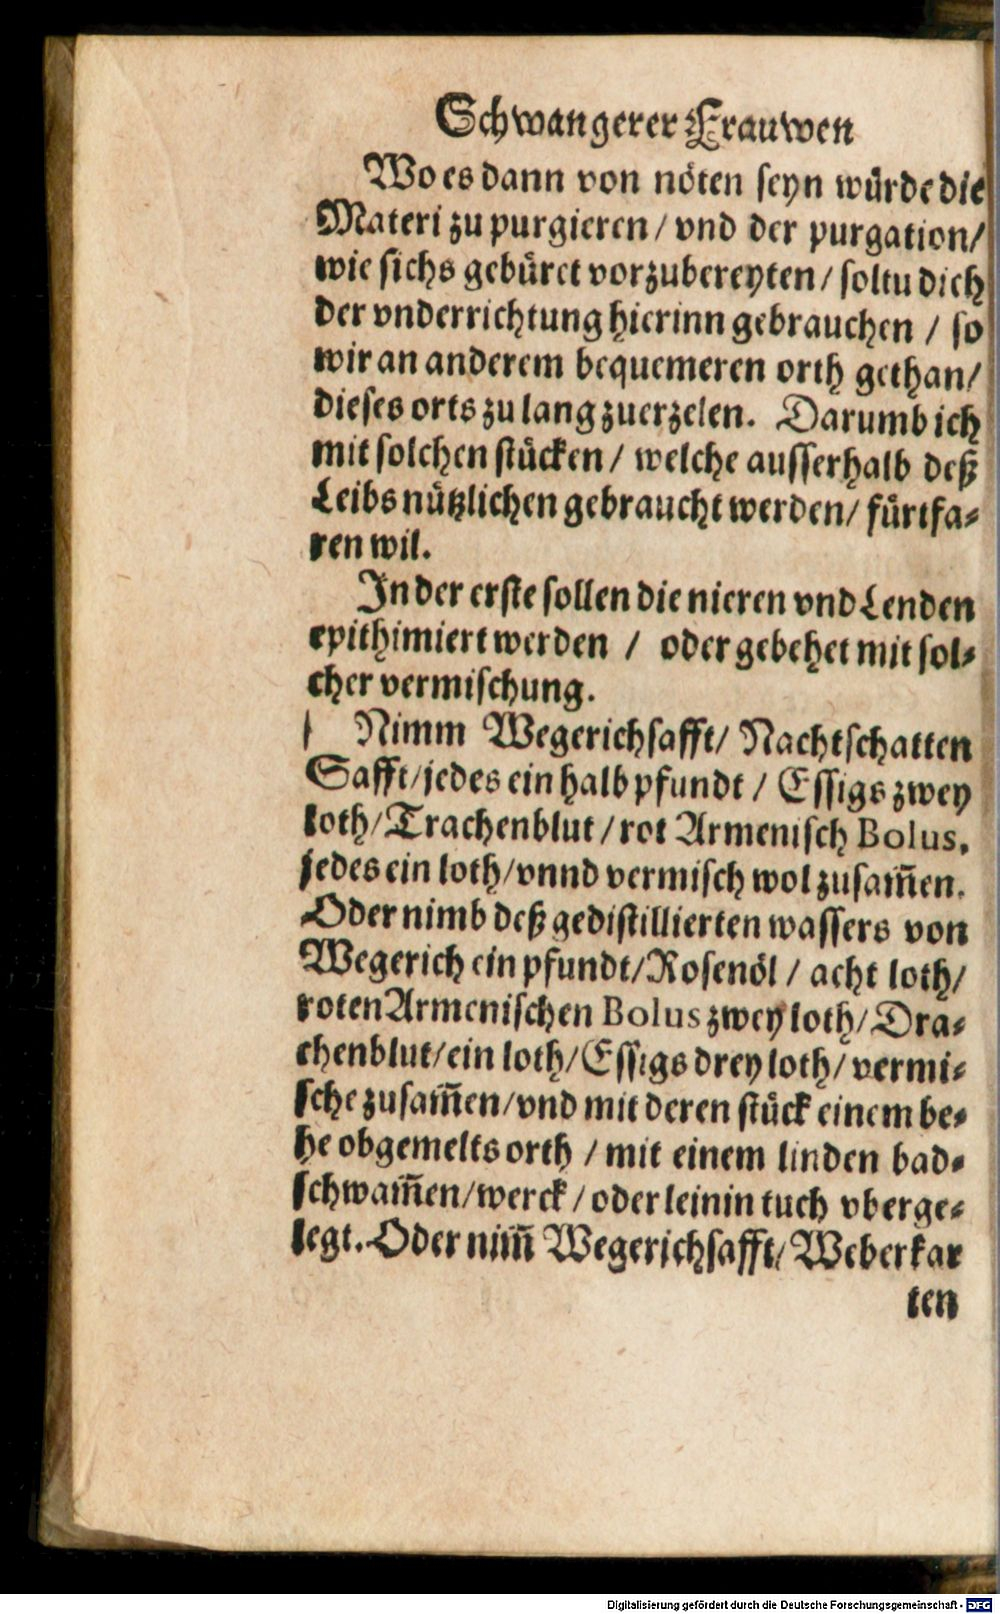 Schwangerer Frauwen
Wo es dann von nöten seyn würde die
Materi zu purgieren / vnd der purgation /
wie sichs gebüret vorzubereyten / soltu dich
der vnderrichtung hierinn gebrauchen / so
wir an anderem bequemeren orth gethan /
dieses orts zu lang zuerzelen. Darumb ich
mit solchen stücken / welche ausserhalb deß
Leibs nützlichen gebraucht werden / fürtfa⸗
ren wil.
In der erste sollen die nieren vnd Lenden
epithimiert werden / oder gebehet mit sol⸗
cher vermischung.
Nimm Wegerichsafft / Nachtschatten
Safft / jedes ein halb pfundt / Essigs zwey
loth / Trachenblut / rot Armenisch Bolus,
jedes ein loth / vnnd vermisch wol zusam̃en.
Oder nimb deß gedistillierten wassers von
Wegerich ein pfundt / Rosenöl / acht loth /
roten Armenischen Bolus zwey loth / Dra⸗
chenblut / ein loth / Essigs drey loth / vermi⸗
sche zusam̃en / vnd mit deren stück einem be⸗
he obgemelts orth / mit einem linden bad⸗
schwam̃en / werck / oder leinin tuch vberge⸗
legt. Oder nim̃ Wegerichsafft / Weberkar
ten
Digitalisierung gefördert durch die Deutsche Forschungsgemeinschaft - DFG